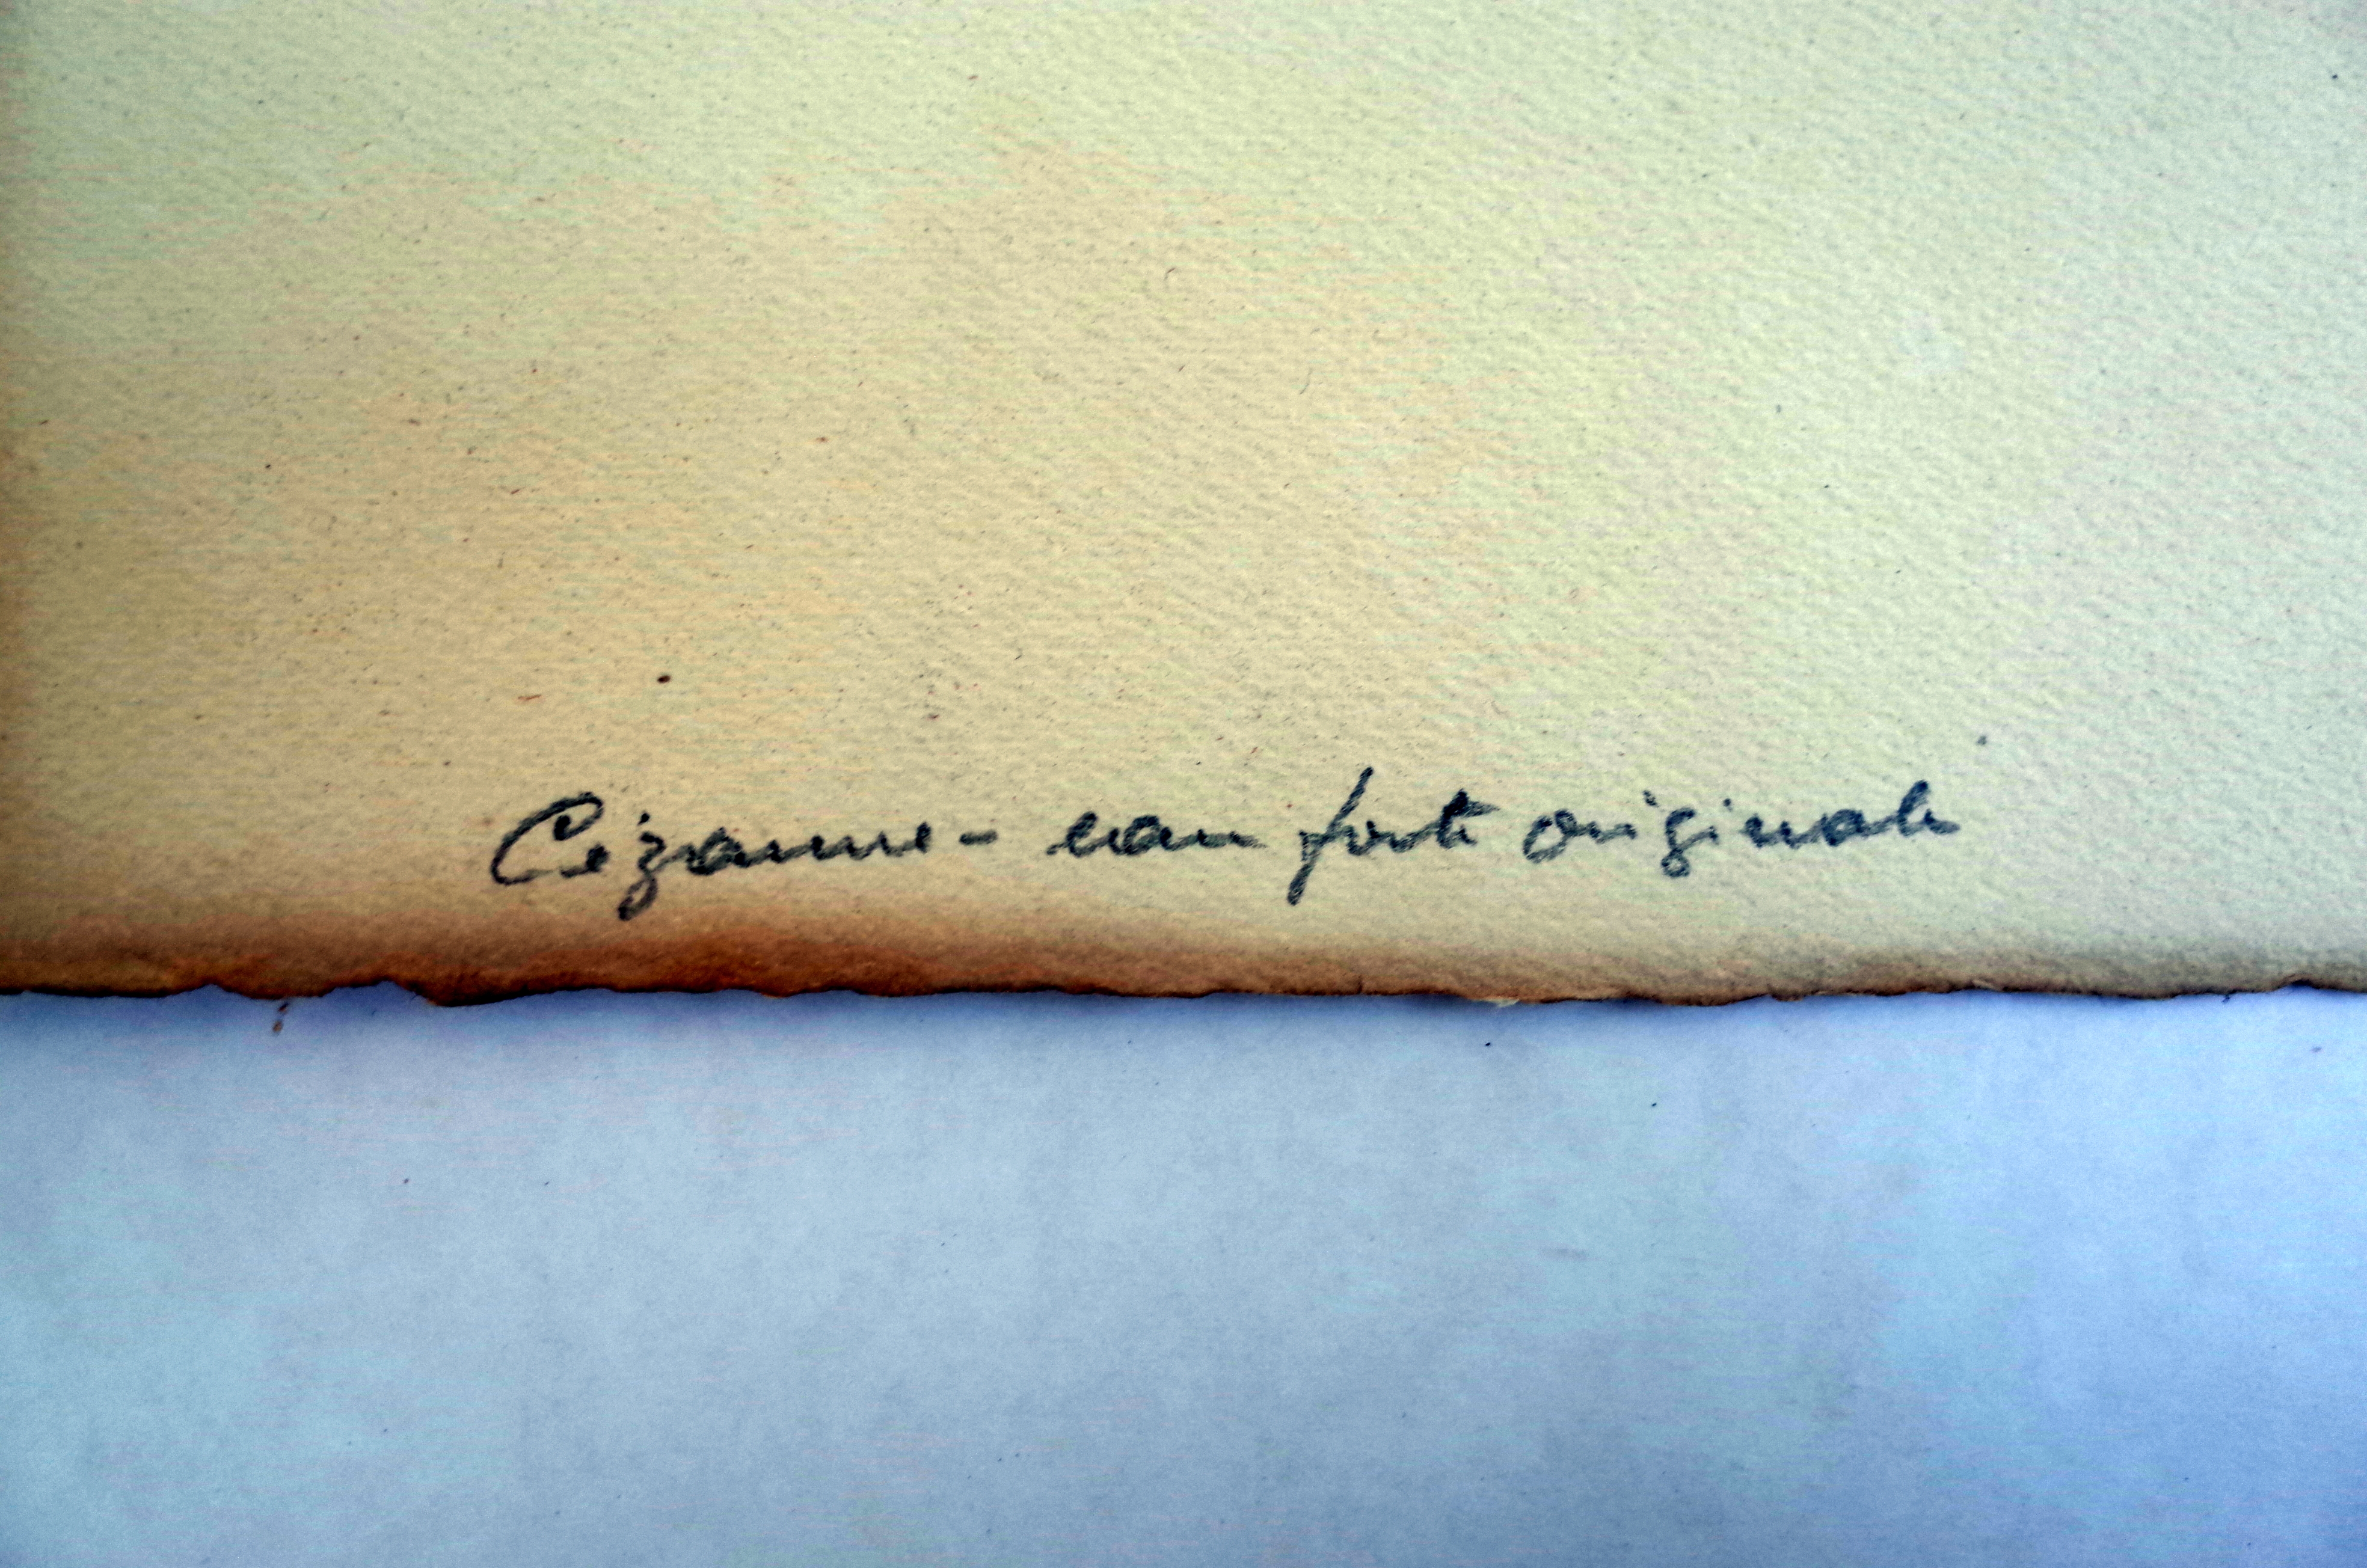 Cézanne - eau forte originale